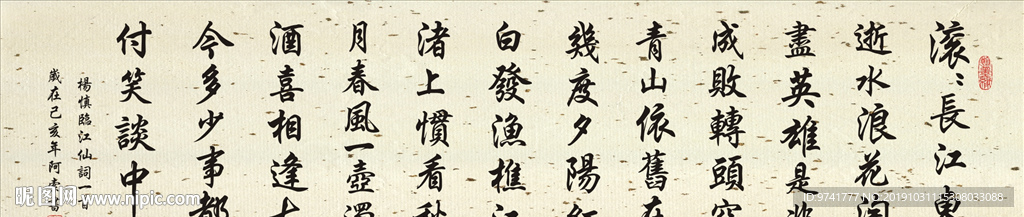 滚〻長江東
逝水浪花淘
盡英雄是非
成敗轉頭空
青山依舊在
幾度夕陽紅
白發漁樵江
渚上慣看秋
月春風一壺濁
酒喜相逢古
今多少事都
付笑談中
楊慎臨江仙詞一首
歲在己亥年阿
昵图网
www.nipic.com